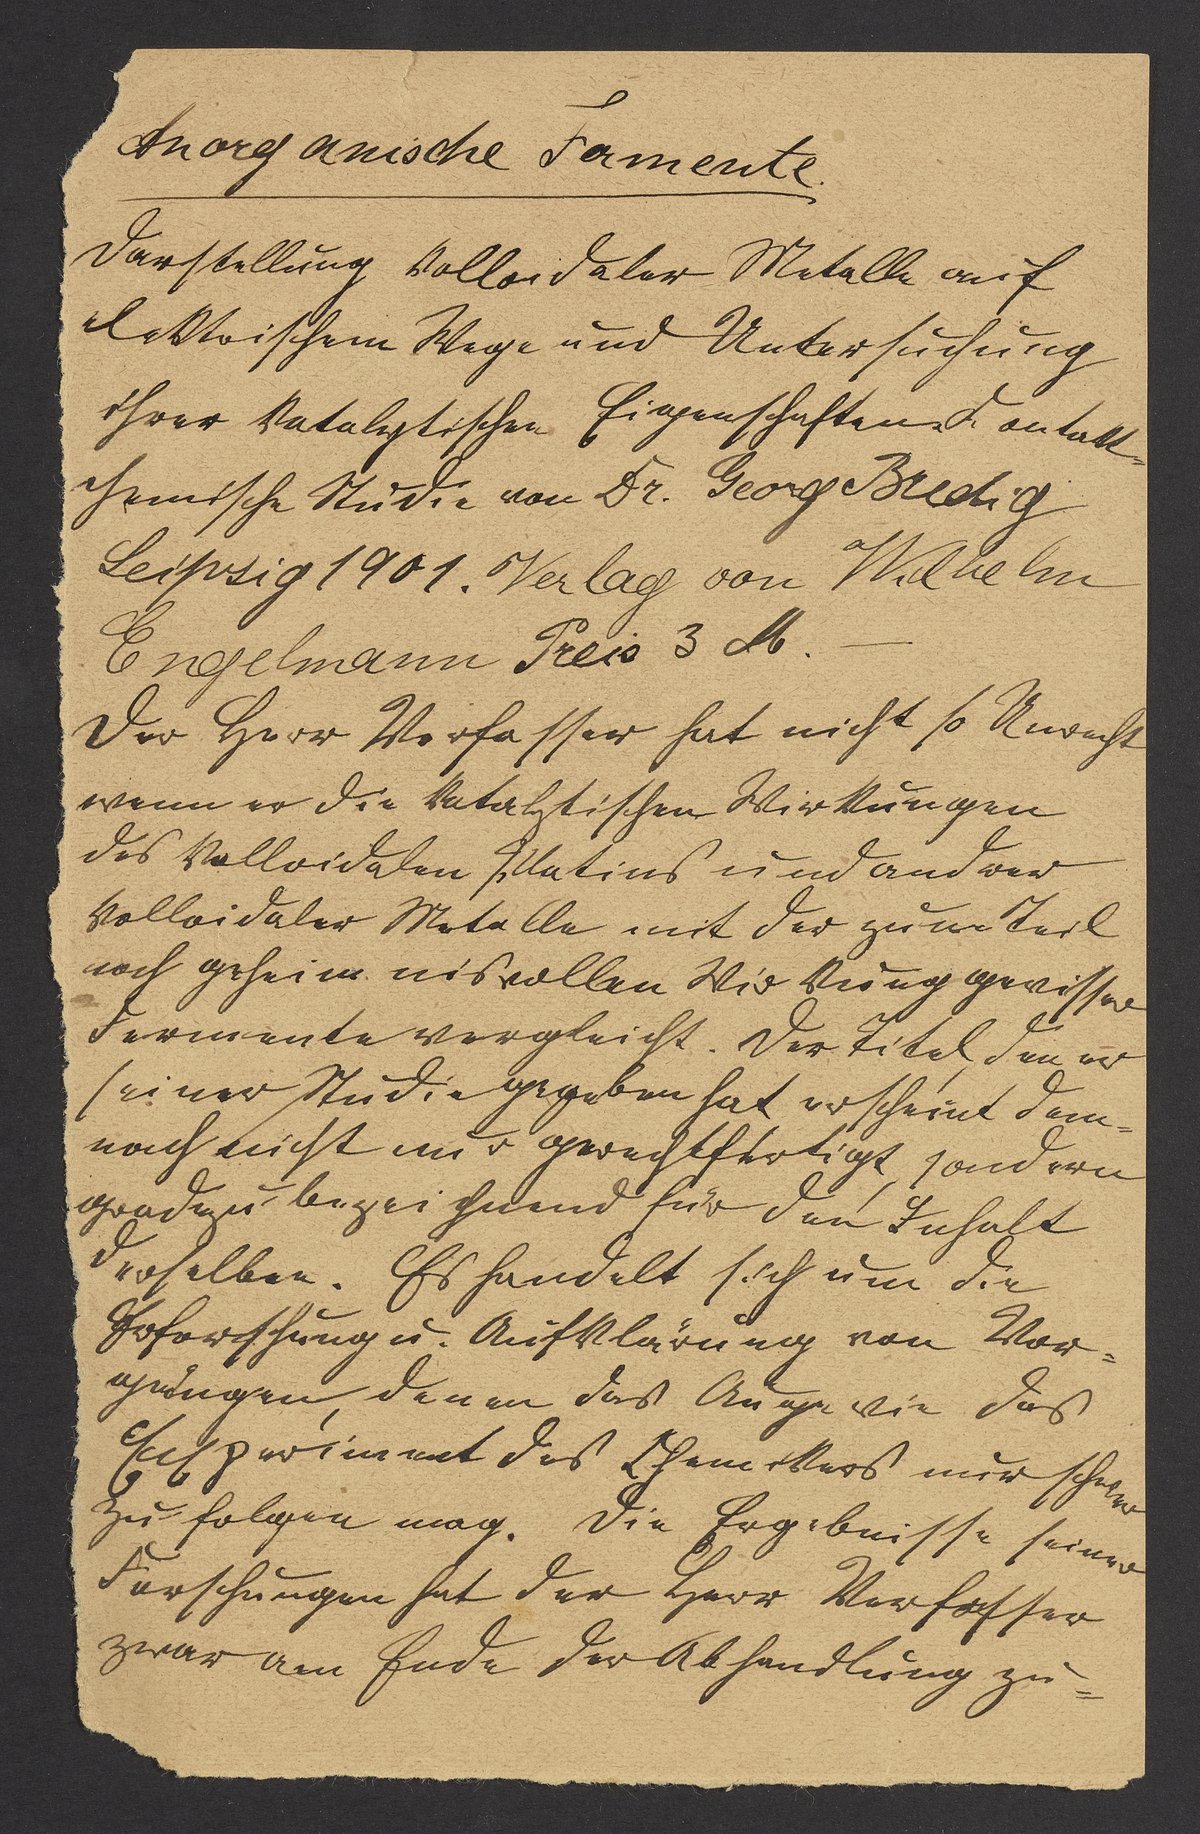 Anorganische Fermente.
Darstellung kolloidaler Metalle auf
elektrischem Wege und Untersuchung
ihrer katalytischen Eigenschaften. Kontakt-
chemische Studie von Dr. Georg Bredig
Leipzig 1901. Verlag von Wilhelm
Engelmann Preis 3 M. —
Der Herr Verfasser hat nicht so Unrecht
wenn er die katalytischen Wirkungen
des kolloidalen Platins und andrer
kolloidaler Metalle mit der zum Teil
noch geheimnisvollen Wirkung gewisser
Fermente vergleicht. Der Titel, den er
seiner Studie gegeben hat erscheint dem-
nach nicht nur gerechtfertigt, sondern
gradezu bezeichnend für den Inhalt
derselben. Es handelt sich um die
Erforschung u. Aufklärung von Vor-
gängen, denen das Auge wie das
Experiment des Chemikers nur schwer
zu folgen mag. Die Ergebnisse seiner
Forschungen hat der Herr Verfasser
zwar am Ende der Abhandlung zu-